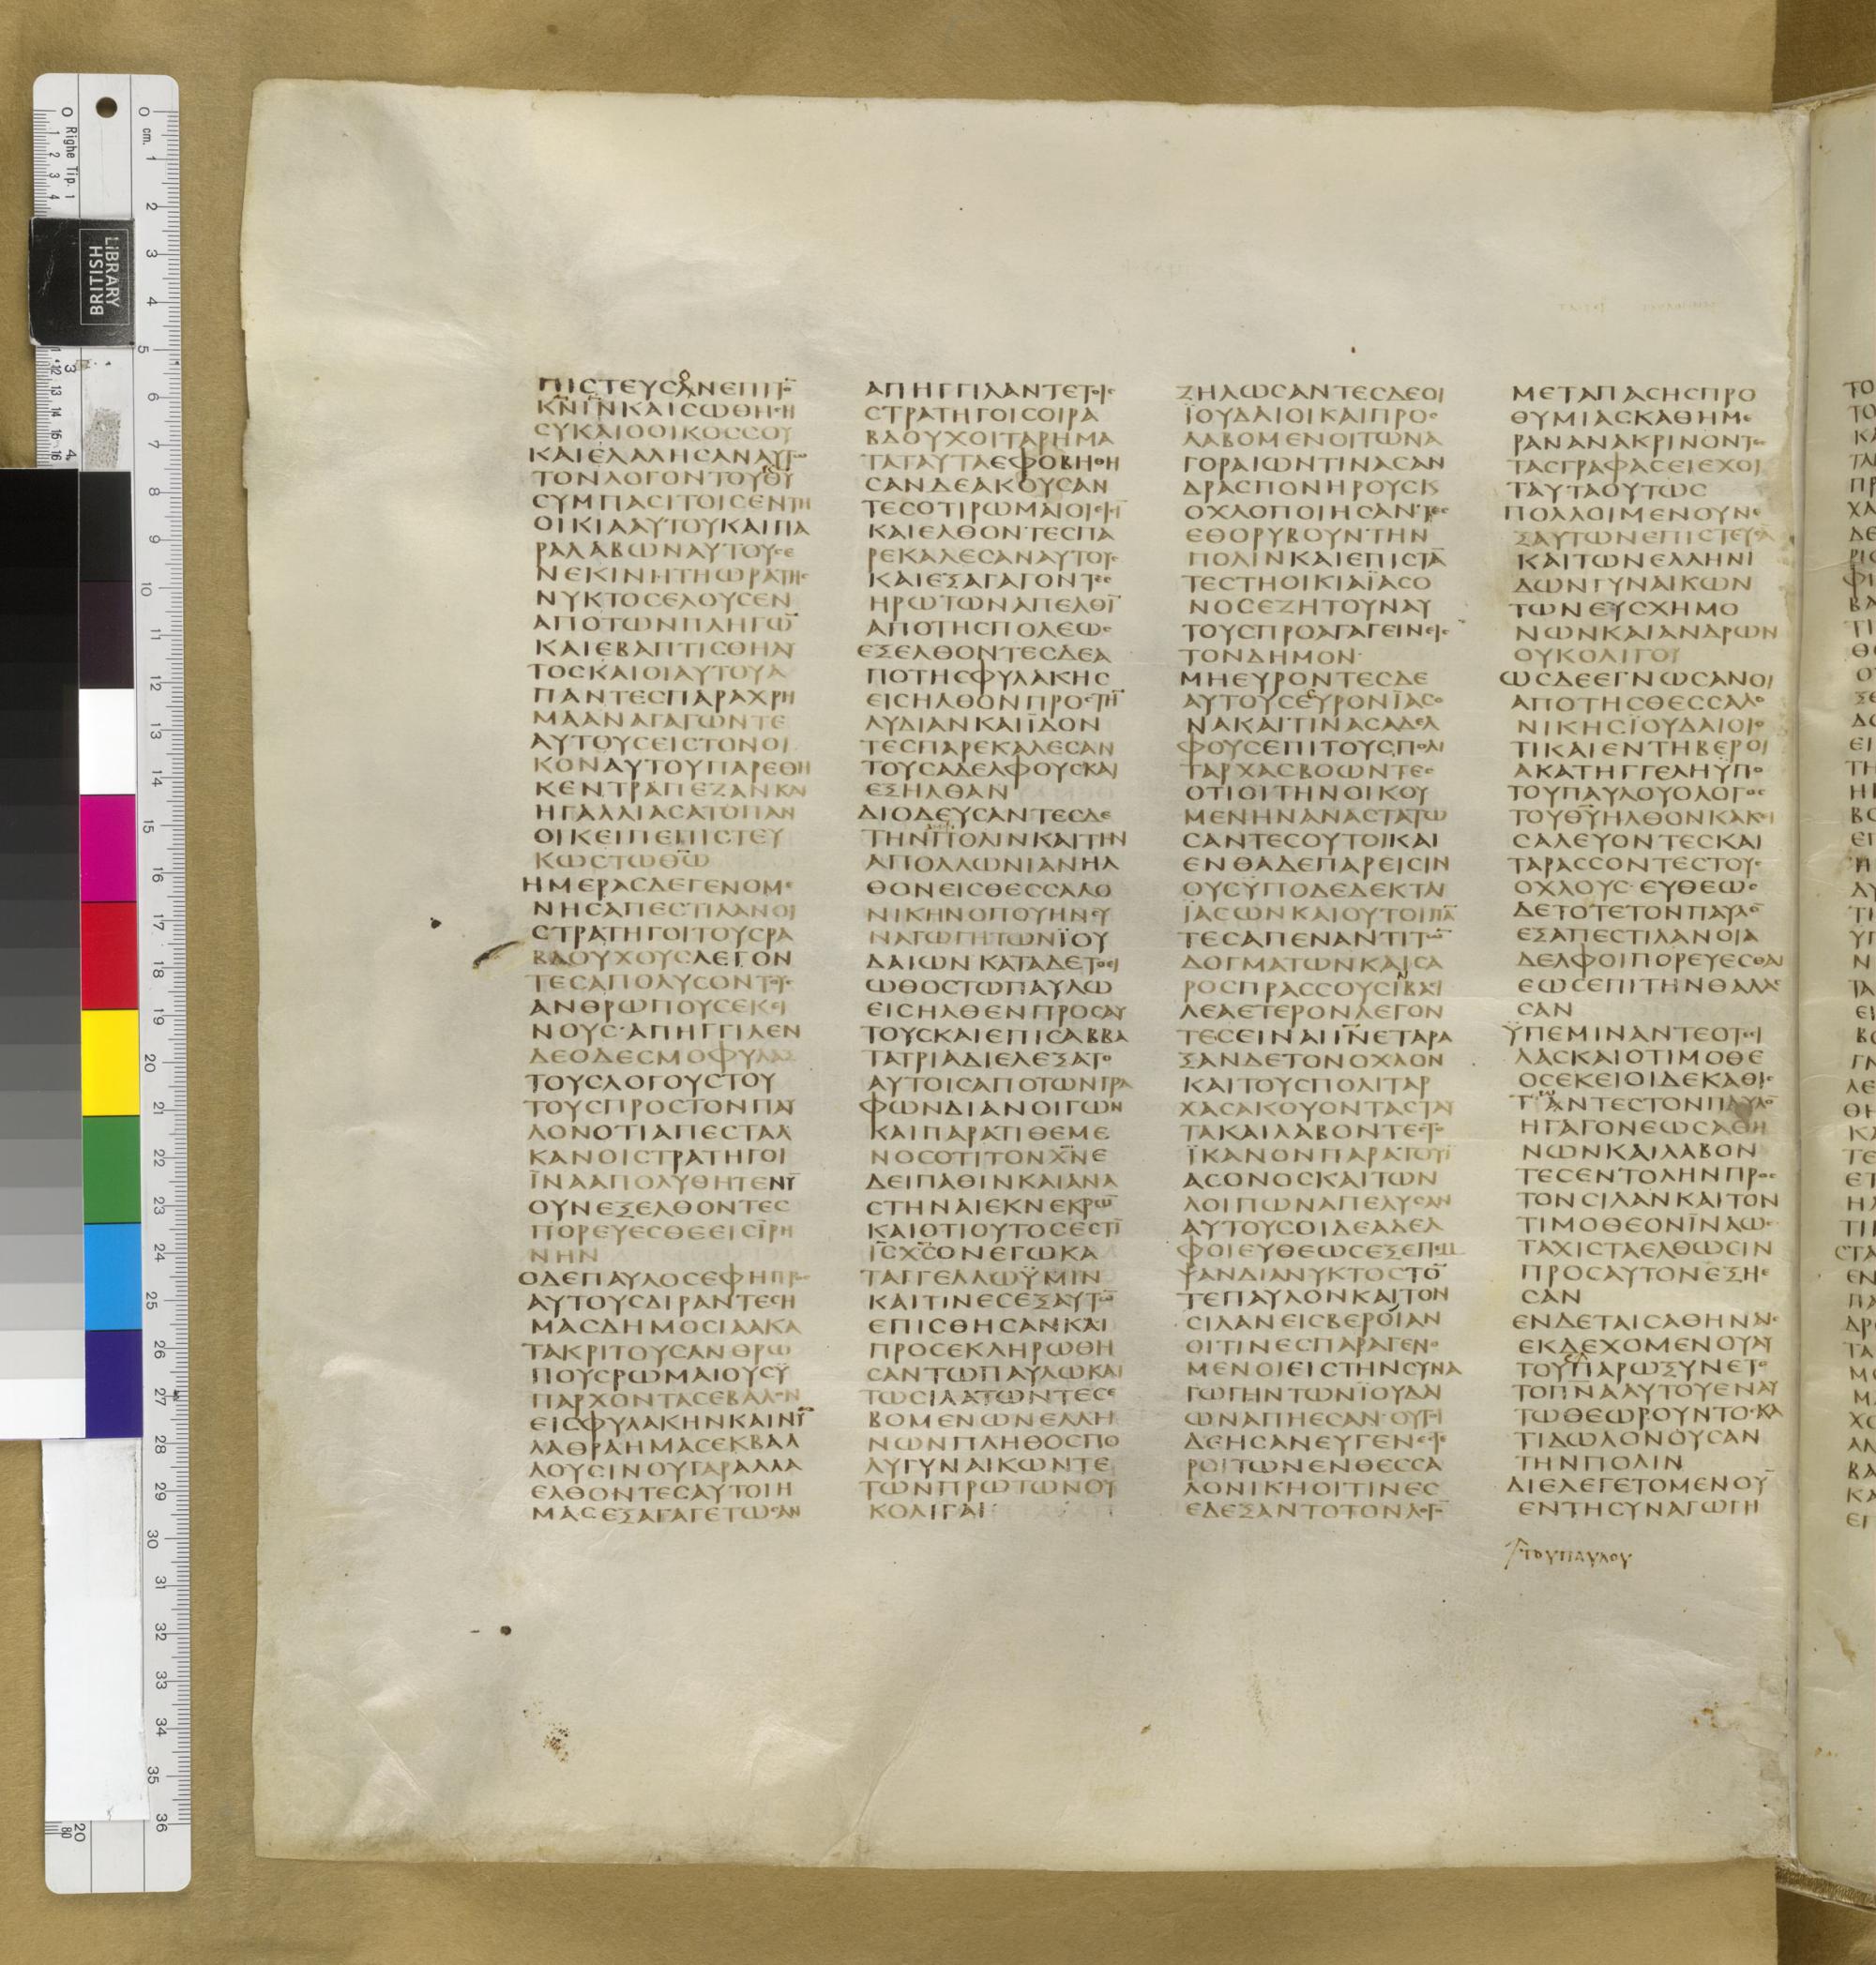 ΠΙCΤΕΥCΟΝΕΠΙΤΟ̅
ΚΝ̅ΙΝ̅ΚΑΙCΩΘΗCΗ
CΥΚΑΙΟΟΙΚΟCCΟΥ
ΚΑΙΕΛΑΛΗCΑΝΑΥΤΩ
ΤΟΝΛΟΓΟΝΤΟΥΘΥ
CΥΜΠΑCΙΤΟΙCΕΝΤΗ
ΟΙΚΙΑΑΥΤΟΥΚΑΙΠΑ
ΡΑΛΑΒΩΝΑΥΤΟΥCΕ
ΝΕΚΙΝΗΤΗΩΡΑΤΗC
ΝΥΚΤΟCΕΛΟΥCΕΝ
ΑΠΟΤΩΝΠΛΗΓΩ̅
ΚΑΙΕΒΑΠΤΙCΘΗΑΥ
ΤΟCΚΑΙΟΙΑΥΤΟΥΑ
ΠΑΝΤΕCΠΑΡΑΧΡΗ
ΜΑΑΝΑΓΑΓΩΝΤΕ
ΑΥΤΟΥCΕΙCΤΟΝΟΙ
ΚΟΝΑΥΤΟΥΠΑΡΕΘΗ
ΚΕΝΤΡΑΠΕΖΑΝΚΑΙ
ΗΓΑΛΛΙΑCΑΤΟΠΑΝ
ΟΙΚΕΙΠΕΠΙCΤΕΥ
ΚΩCΤΩΘΩ̅
ΗΜΕΡΑCΔΕΓΕΝΟΜΕ
ΝΗCΑΠΕCΤΙΛΑΝΟΙ
CΤΡΑΤΗΓΟΙΤΟΥCΡΑ
ΒΔΟΥΧΟΥCΛΕΓΟΝ
ΤΕCΑΠΟΛΥCΟΝΤΟΥC
ΑΝΘΡΩΠΟΥCΕΚΕΙ
ΝΟΥC·ΑΠΗΓΓΙΛΕΝ
ΔΕΟΔΕCΜΟΦΥΛΑΞ
ΤΟΥCΛΟΓΟΥCΤΟΥ
ΤΟΥCΠΡΟCΤΟΝΠΑΥ
ΛΟΝΟΤΙΑΠΕCΤΑΛ
ΚΑΝΟΙCΤΡΑΤΗΓΟΙ
ΪΝΑΑΠΟΛΥΘΗΤΕΝΥ̅
ΟΥΝΕΞΕΛΘΟΝΤΕC
ΠΟΡΕΥΕCΘΕΕΙCΪΡΗ
ΝΗΝ
ΟΔΕΠΑΥΛΟCΕΦΗΠΡΟC
ΑΥΤΟΥCΔΙΡΑΝΤΕCΗ
ΜΑCΔΗΜΟCΙΑΑΚΑ
ΤΑΚΡΙΤΟΥCΑΝΘΡΩ
ΠΟΥCΡΩΜΑΙΟΥCΫ
ΠΑΡΧΟΝΤΑCΕΒΑΛΟΝ
ΕΙCΦΥΛΑΚΗΝΚΑΙΝΥ̅
ΛΑΘΡΑΗΜΑCΕΚΒΑΛ
ΛΟΥCΙΝΟΥΓΑΡΑΛΛΑ
ΕΛΘΟΝΤΕCΑΥΤΟΙΗ
ΜΑCΕΞΑΓΑΓΕΤΩCΑΝ
ΑΠΗΓΓΙΛΑΝΤΕΤΟΙC
CΤΡΑΤΗΓΟΙCΟΙΡΑ
ΒΔΟΥΧΟΙΤΑΡΗΜΑ
ΤΑΤΑΥΤΑΕΦΟΒΗΘΗ
CΑΝΔΕΑΚΟΥCΑΝ
ΤΕCΟΤΙΡΩΜΑΙΟΙΕΙCΙ̅
ΚΑΙΕΛΘΟΝΤΕCΠΑ
ΡΕΚΑΛΕCΑΝΑΥΤΟΥC
ΚΑΙΕΞΑΓΑΓΟΝΤΕC
ΗΡΩΤΩΝΑΠΕΛΘΙ̅
ΑΠΟΤΗCΠΟΛΕΩC
ΕΞΕΛΘΟΝΤΕCΔΕΑ
ΠΟΤΗCΦΥΛΑΚΗC
ΕΙCΗΛΘΟΝΠΡΟCΤΗ̅
ΛΥΔΙΑΝΚΑΙΪΔΟΝ
ΤΕCΠΑΡΕΚΑΛΕCΑΝ
ΤΟΥCΑΔΕΛΦΟΥCΚΑΙ
ΕΞΗΛΘΑΝ
ΔΙΟΔΕΥCΑΝΤΕCΔΕ
ΤΗΝΠΟΛΙΝΚΑΙΤΗΝ
ΑΠΟΛΛΩΝΙΑΝΗΛ
ΘΟΝΕΙCΘΕCCΑΛΟ
ΝΙΚΗΝΟΠΟΥΗΝCΥ
ΝΑΓΩΓΗΤΩΝΪΟΥ
ΔΑΙΩΝΚΑΤΑΔΕΤΟΕΙ
ΩΘΟCΤΩΠΑΥΛΩ
ΕΙCΗΛΘΕΝΠΡΟCΑΥ
ΤΟΥCΚΑΙΕΠΙCΑΒΒΑ
ΤΑΤΡΙΑΔΙΕΛΕΞΑΤΟ
ΑΥΤΟΙCΑΠΟΤΩΝΓΡΑ
ΦΩΝΔΙΑΝΟΙΓΩΝ
ΚΑΙΠΑΡΑΤΙΘΕΜΕ
ΝΟCΟΤΙΤΟΝΧ̅Ν̅Ε
ΔΕΙΠΑΘΙΝΚΑΙΑΝΑ
CΤΗΝΑΙΕΚΝΕΚΡΩ̅
ΚΑΙΟΤΙΟΥΤΟCΕCΤΙ̅
Ι̅C̅Χ̅C̅ΟΝΕΓΩΚΑ
ΤΑΓΓΕΛΛΩΫΜΙΝ
ΚΑΙΤΙΝΕCΕΞΑΥΤΩ̅
ΕΠΙCΘΗCΑΝΚΑΙ
ΠΡΟCΕΚΛΗΡΩΘΗ
CΑΝΤΩΠΑΥΛΩΚΑΙ
ΤΩCΙΛΑΤΩΝΤΕCΕ
ΒΟΜΕΝΩΝΕΛΛΗ
ΝΩΝΠΛΗΘΟCΠΟ
ΛΥΓΥΝΑΙΚΩΝΤΕ
ΤΩΝΠΡΩΤΩΝΟΥ
ΚΟΛΙΓΑΙ
ΖΗΛΩCΑΝΤΕCΔΕΟΙ
ΪΟΥΔΑΙΟΙΚΑΙΠΡΟC
ΛΑΒΟΜΕΝΟΙΤΩΝΑ
ΓΟΡΑΙΩΝΤΙΝΑCΑΝ
ΔΡΑCΠΟΝΗΡΟΥCΚ
ΟΧΛΟΠΟΙΗCΑΝΤΕC
ΕΘΟΡΥΒΟΥΝΤΗΝ
ΠΟΛΙΝΚΑΙΕΠΙCΤΑ̅
ΤΕCΤΗΟΙΚΙΑΪΑCΟ
ΝΟCΕΖΗΤΟΥΝΑΥ
ΤΟΥCΠΡΟΑΓΑΓΕΙΝΕΙC
ΤΟΝΔΗΜΟΝ
ΜΗΕΥΡΟΝΤΕCΔΕ
ΑΥΤΟΥCΕΥΡΟΝΪΑCΟ
ΝΑΚΑΙΤΙΝΑCΑΔΕΛ
ΦΟΥCΕΠΙΤΟΥCΠΟΛΙ
ΤΑΡΧΑCΒΟΩΝΤΕC
ΟΤΙΟΙΤΗΝΟΙΚΟΥ
ΜΕΝΗΝΑΝΑCΤΑΤΩ
CΑΝΤΕCΟΥΤΟΙΚΑΙ
ΕΝΘΑΔΕΠΑΡΕΙCΙΝ
ΟΥCΫΠΟΔΕΔΕΚΤΑΙ
ΪΑCΩΝΚΑΙΟΥΤΟΙΠΑ̅
ΤΕCΑΠΕΝΑΝΤΙΤΩ̅
ΔΟΓΜΑΤΩΝΚΑΙCΑ
ΡΟCΠΡΑCCΟΥCΙΒΑCΙ
ΛΕΑΕΤΕΡΟΝΛΕΓΟΝ
ΤΕCΕΙΝΑΙΙ̅Ν̅ΕΤΑΡΑ
ΞΑΝΔΕΤΟΝΟΧΛΟΝ
ΚΑΙΤΟΥCΠΟΛΙΤΑΡ
ΧΑCΑΚΟΥΟΝΤΑCΤΑΥ
ΤΑΚΑΙΛΑΒΟΝΤΕCΤΟ
ΪΚΑΝΟΝΠΑΡΑΤΟΥΪ
ΑCΟΝΟCΚΑΙΤΩΝ
ΛΟΙΠΩΝΑΠΕΛΥCΑΝ
ΑΥΤΟΥCΟΙΔΕΑΔΕΛ
ΦΟΙΕΥΘΕΩCΕΞΕΠΕΜ
ΨΑΝΔΙΑΝΥΚΤΟCΤΟ̅
ΤΕΠΑΥΛΟΝΚΑΙΤΟΝ
CΙΛΑΝΕΙCΒΕΡΟΙΑΝ
ΟΙΤΙΝΕCΠΑΡΑΓΕΝΟ
ΜΕΝΟΙΕΙCΤΗΝCΥΝΑ
ΓΩΓΗΝΤΩΝΪΟΥΔΑΙ
ΩΝΑΠΗΕCΑΝ·ΟΥΤΟΙ
ΔΕΗCΑΝΕΥΓΕΝΕCΤΕ
ΡΟΙΤΩΝΕΝΘΕCCΑ
ΛΟΝΙΚΗΟΙΤΙΝΕC
ΕΔΕΞΑΝΤΟΤΟΝΛΟΓΟ̅
ΜΕΤΑΠΑCΗCΠΡΟ
ΘΥΜΙΑCΚΑΘΗΜΕ
ΡΑΝΑΝΑΚΡΙΝΟΝΤΕC
ΤΑCΓΡΑΦΑCΕΙΕΧΟΙ
ΤΑΥΤΑΟΥΤΩC
ΠΟΛΛΟΙΜΕΝΟΥΝΕ
ΞΑΥΤΩΝΕΠΙCΤΕΥCΑ̅
ΚΑΙΤΩΝΕΛΛΗΝΙ
ΔΩΝΓΥΝΑΙΚΩΝ
ΤΩΝΕΥCΧΗΜΟ
ΝΩΝΚΑΙΑΝΔΡΩΝ
ΟΥΚΟΛΙΓΟΙ
ΩCΔΕΕΓΝΩCΑΝΟΙ
ΑΠΟΤΗCΘΕCCΑΛΟ
ΝΙΚΗCΪΟΥΔΑΙΟΙΟ
ΤΙΚΑΙΕΝΤΗΒΕΡΟΙ
ΑΚΑΤΗΓΓΕΛΗΫΠΟ
ΤΟΥΠΑΥΛΟΥΟΛΟΓΟC
ΤΟΥΘΥ̅ΗΛΘΟΝΚΑΚΕΙ
CΑΛΕΥΟΝΤΕCΚΑΙ
ΤΑΡΑCCΟΝΤΕCΤΟΥC
ΟΧΛΟΥC·ΕΥΘΕΩC
ΔΕΤΟΤΕΤΟΝΠΑΥΛΟ̅
ΕΞΑΠΕCΤΙΛΑΝΟΙΑ
ΔΕΛΦΟΙΠΟΡΕΥΕCΘΑΙ
ΕΩCΕΠΙΤΗΝΘΑΛΑC
CΑΝ
ΫΠΕΜΙΝΑΝΤΕΟΤΕCΙ
ΛΑCΚΑΙΟΤΙΜΟΘΕ
ΟCΕΚΕΙΟΙΔΕΚΑΘΙC
ΤΑΝΤΕCΤΟΝΠΑΥΛΟ̅
ΗΓΑΓΟΝΕΩCΑΘΗ
ΝΩΝΚΑΙΛΑΒΟΝ
ΤΕCΕΝΤΟΛΗΝΠΡΟC
ΤΟΝCΙΛΑΝΚΑΙΤΟΝ
ΤΙΜΟΘΕΟΝΪΝΑΩC
ΤΑΧΙCΤΑΕΛΘΩCΙΝ
ΠΡΟCΑΥΤΟΝΕΞΗΕ
CΑΝ
ΕΝΔΕΤΑΙCΑΘΗΝΑΙC
ΕΚΔΕΧΟΜΕΝΟΥΑΥ
ΤΟΥΠΑΡΩΞΥΝΕΤΟ
ΤΟΠΝ̅ΑΑΥΤΟΥΕΝΑΥ
ΤΩΘΕΩΡΟΥΝΤΟCΚΑ
ΤΙΔΩΛΟΝΟΥCΑΝ
ΤΗΝΠΟΛΙΝ
ΔΙΕΛΕΓΕΤΟΜΕΝΟΥ̅
ΕΝΤΗCΥΝΑΓΩΓΗ
ΤΟΥΠΑΥΛΟΥ
BRITISH
LIBRARY
Righe Tip. 1
cm.